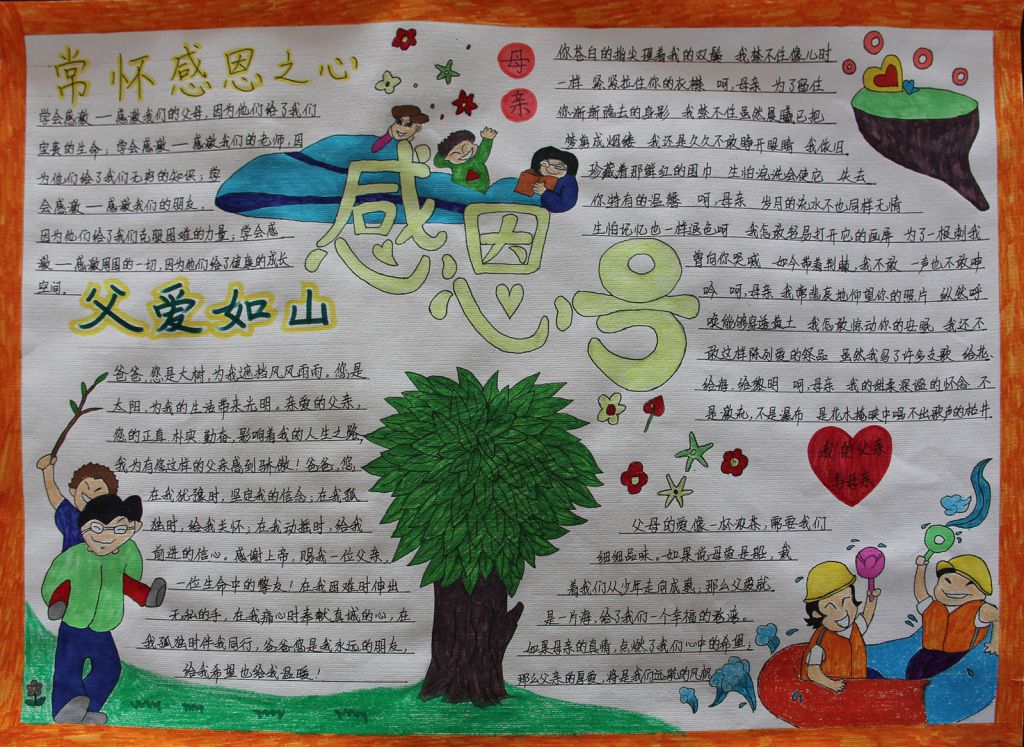 常怀感恩之心
学会感激——感激我们的父母,因为他们给了我们
宝贵的生命;学会感激——感激我们的老师,因
为他们给了我们无穷的知识;学
会感激——感激我们的朋友,
因为他们给了我们克服困难的力量;学会感
激——感激周围的一切,因为他们给了健康的成长
空间。
父爱如山
爸爸,您是大树,为我遮挡风风雨雨。您是
太阳,为我的生活带来光明。亲爱的父亲,
您的正直 朴实 勤奋,影响着我的人生之路,
我为有您这样的父亲感到骄傲!爸爸,您,
在我犹豫时,坚定我的信念;在我孤
独时,给我关怀;在我动摇时,给我
前进的信心。感谢上帝,赐我一位父亲,
一位生命中的挚友!在我困难时伸出
无私的手,在我痛心时奉献真诚的心,在
我孤独时伴我同行,爸爸您是我永远的朋友,
给我希望也给我温暖!
感恩心号
母亲
你苍白的指尖理着我的双鬓 我禁不住像儿时
一样 紧紧拉住你的衣襟 呵,母亲 为了留住
你渐渐隐去的身影 我禁不住虽然晨曦已把
梦剪成烟缕 我还是久久不敢睁开眼睛 我依旧
珍藏着那鲜红的围巾 生怕浣洗会使它 失去
你特有的温馨 呵,母亲 岁月的流水不也同样无情
生怕记忆也一样退色呵 我怎敢轻易打开它的画屏 为了一根刺我
曾向你哭喊 如今带着荆棘,我不敢 一声也不敢呻
吟 呵,母亲 我常悲哀地仰望你的照片 纵然呼
唤能够穿透黄土 我怎敢惊动你的安眠 我还不
敢这样陈列爱的祭品 虽然我写了许多支歌 给花、
给海、给黎明 呵,母亲 我的甜柔深谧的怀念 不
是激流,不是瀑布 是花木掩映中唱不出歌声的枯井
我的父亲
与母亲
父母的爱像一杯浓茶,需要我们
细细品味。如果说母爱是船,载
着我们从少年走向成熟;那么父爱就
是一片海,给了我们一个幸福的港湾。
如果母亲的真情,点燃了我们心中的希望;
那么父亲的厚爱,将是我们远航的风帆